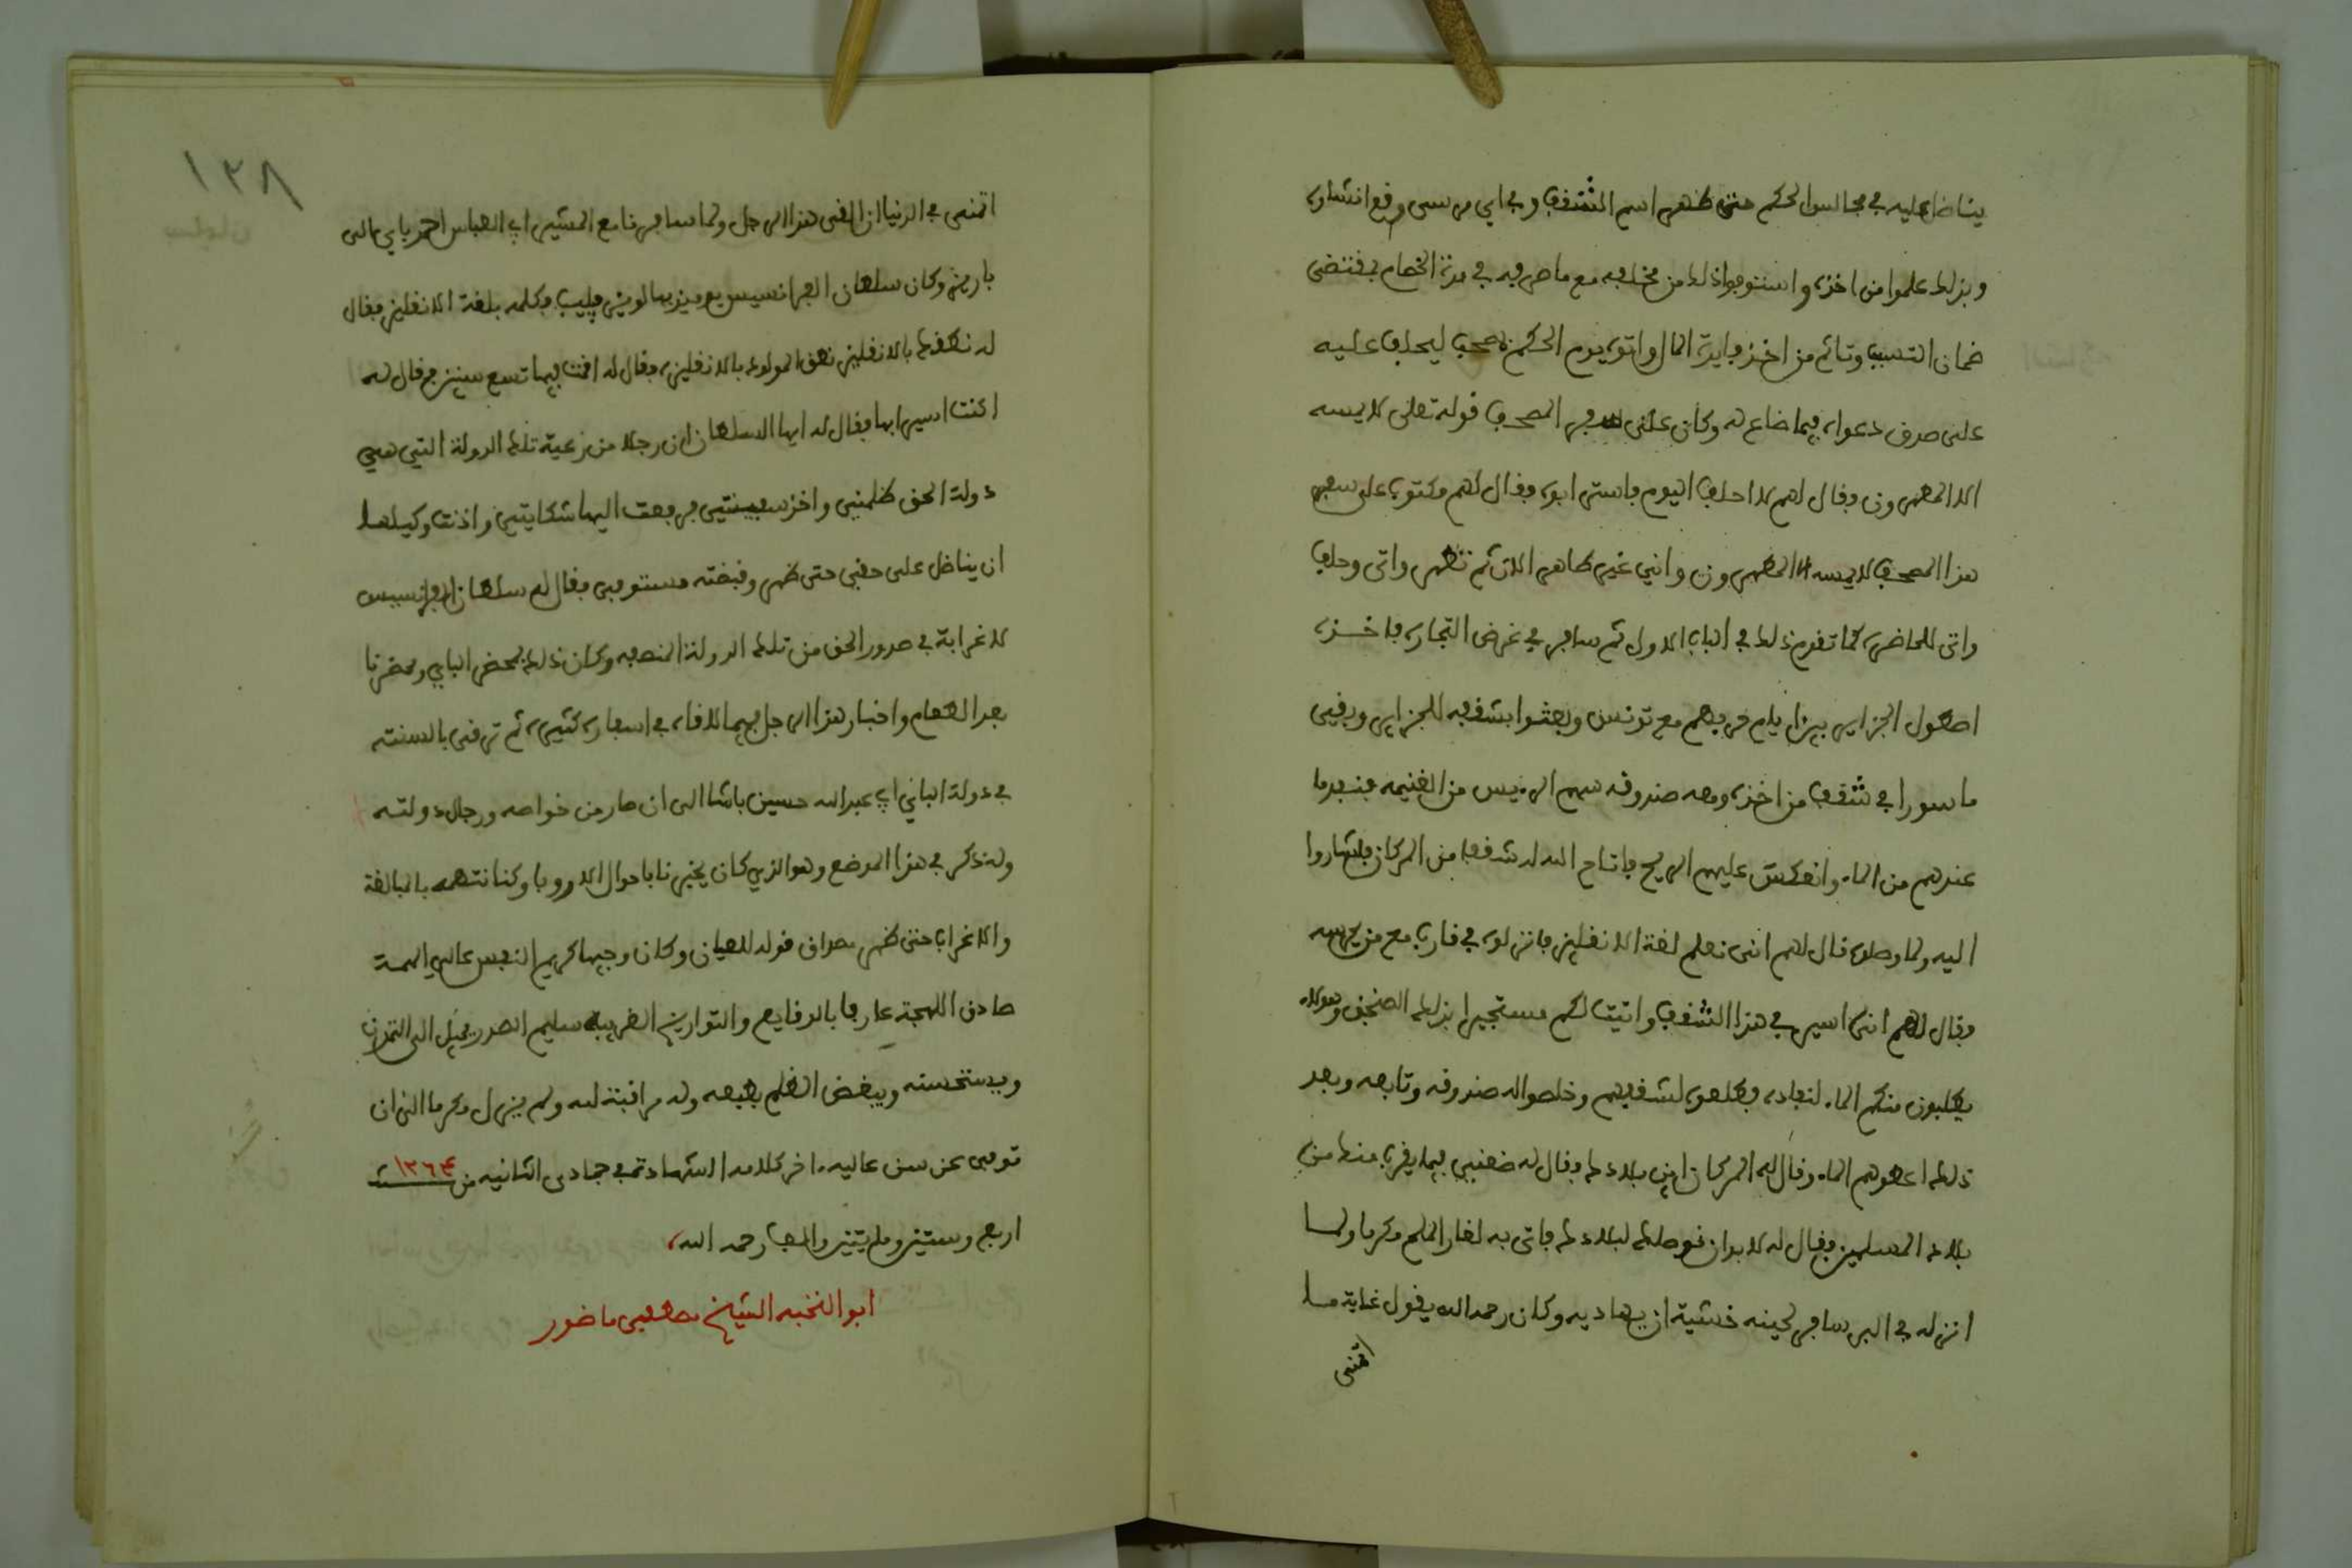 يناضل عليه في مجالس الحكم حتى ظهر اسم الشقف وفي اي مرسى وقع انشاوه
وبذلك علموا من اخذه واستوجبوا ذلك من مخلفه مع ما صرفه في مدة الخصام بمقتضى
ضمان التسبب وتأثم من اخذ فايدة المال واتوه يوم الحكم بمصحف ليحلف عليه
على صدق دعواه فيما ضاع له وكان على سفر المصحف قوله تعلى لا يمسه
الا المطهرون فقال لهم لا احلف اليوم فاسترابوه فقال لهم مكتوب على سفر
هذا المصحف لا يمسه الا المطهرون واني غير طاهر الان ثم تطهر واتى وحلف
واتى للحاضرة كما تقدم ذلك في الباب الاول ثم سافر في غرض التجارة فاخذه
اصطول الجزاير بين ايام حربهم مع تونس وبعثوا بشقفه للجزاير وبقي
ماسورا في شقف من اخذه ومعه صندوقه سهم الرايس من الغنيمه فنفد ما
عندهم من الماء وانعكست عليهم الريح فاتاح الله له شقفا من المركان فاشاروا
اليه ولما وصلوه قال لهم انني نعلم لغة الانقليز فانزلوه في قارب مع من يحرسه
فقال لهم انني اسير في هذا الشقف واتيت لكم مستجيرا بذلك الصنجق وهولاء
يطلبون منكم الماء لنفاده فطلعوه لشقفهم وخلصوا له صندوقه وتابعه وبعد
ذلك اعطوهم الماء وقال له المركان اين بلادك فقال له ضعني فيما يقرب منك من
بلاد المسلمين فقال له لا بد ان نوصلك لبلادك فاتى به لغار الملح مكرما ولما
انزله في البر سافر لحينه خشية ان يهاديه وكان رحمه الله يقول غاية ما
اتمنى
١٣٨
اتمنى في الدنيا ان القى هذا الرجل ولما سافرنا مع المشير ابي العباس احمد باي الى
باريز وكان سلطان الفرانسيس يومئذ بها لويز فليب فكلمه بلغة الانقليز فقال
له نطقك بالانقليز نطق المولود بالانقليزه فقال له اقمت فيها تسع سنين فقال له
اكنت اسيرا بها فقال له ايها السلطان ان رجلا من رعية تلك الدولة التي هي
دولة الحق ظلمني واخذ سفينتي فرفعت اليها شكايتي واذنت وكيلها
ان يناضل على حقي حتى ظهر وقبضته مستوفى فقال له سلطان الفرانسيس
لا غرابة في صدور الحق من تلك الدولة المنصفه وكان ذلك بمحضر الباي ومحضرنا
بعد الطعام واخبار هذا الرجل فيما لاقاه في اسفاره كثيره ثم ترقى بالسنه
في دولة الباي ابي عبد الله حسين باشا الى ان صار من خواصه ورجال دولته
وله ذكر في هذا الموضع وهو الذي كان يخبرنا باحوال الاوروبا وكنا نتهمه بالمبالغة
والاغراب حتى ظهر مصداق قوله للعيان وكان وجيها كريم النفس عالي الهمة
صادق اللهجة عارفا بالوقايع والتواريخ الغريبه سليم الصدر يميل الى التمدن
ويستحسنه ويبغض الظلم بطبعه وله مراقبة لله ولم يزل مكرما الى ان
توفى عن سن عاليه اخر كلامه الشهادة في جمادى الثانيه من سنة ١٢٦٤
اربع وستين ومايتين والف رحمه الله
ابو النخبه الشيخ مصطفى ماضور